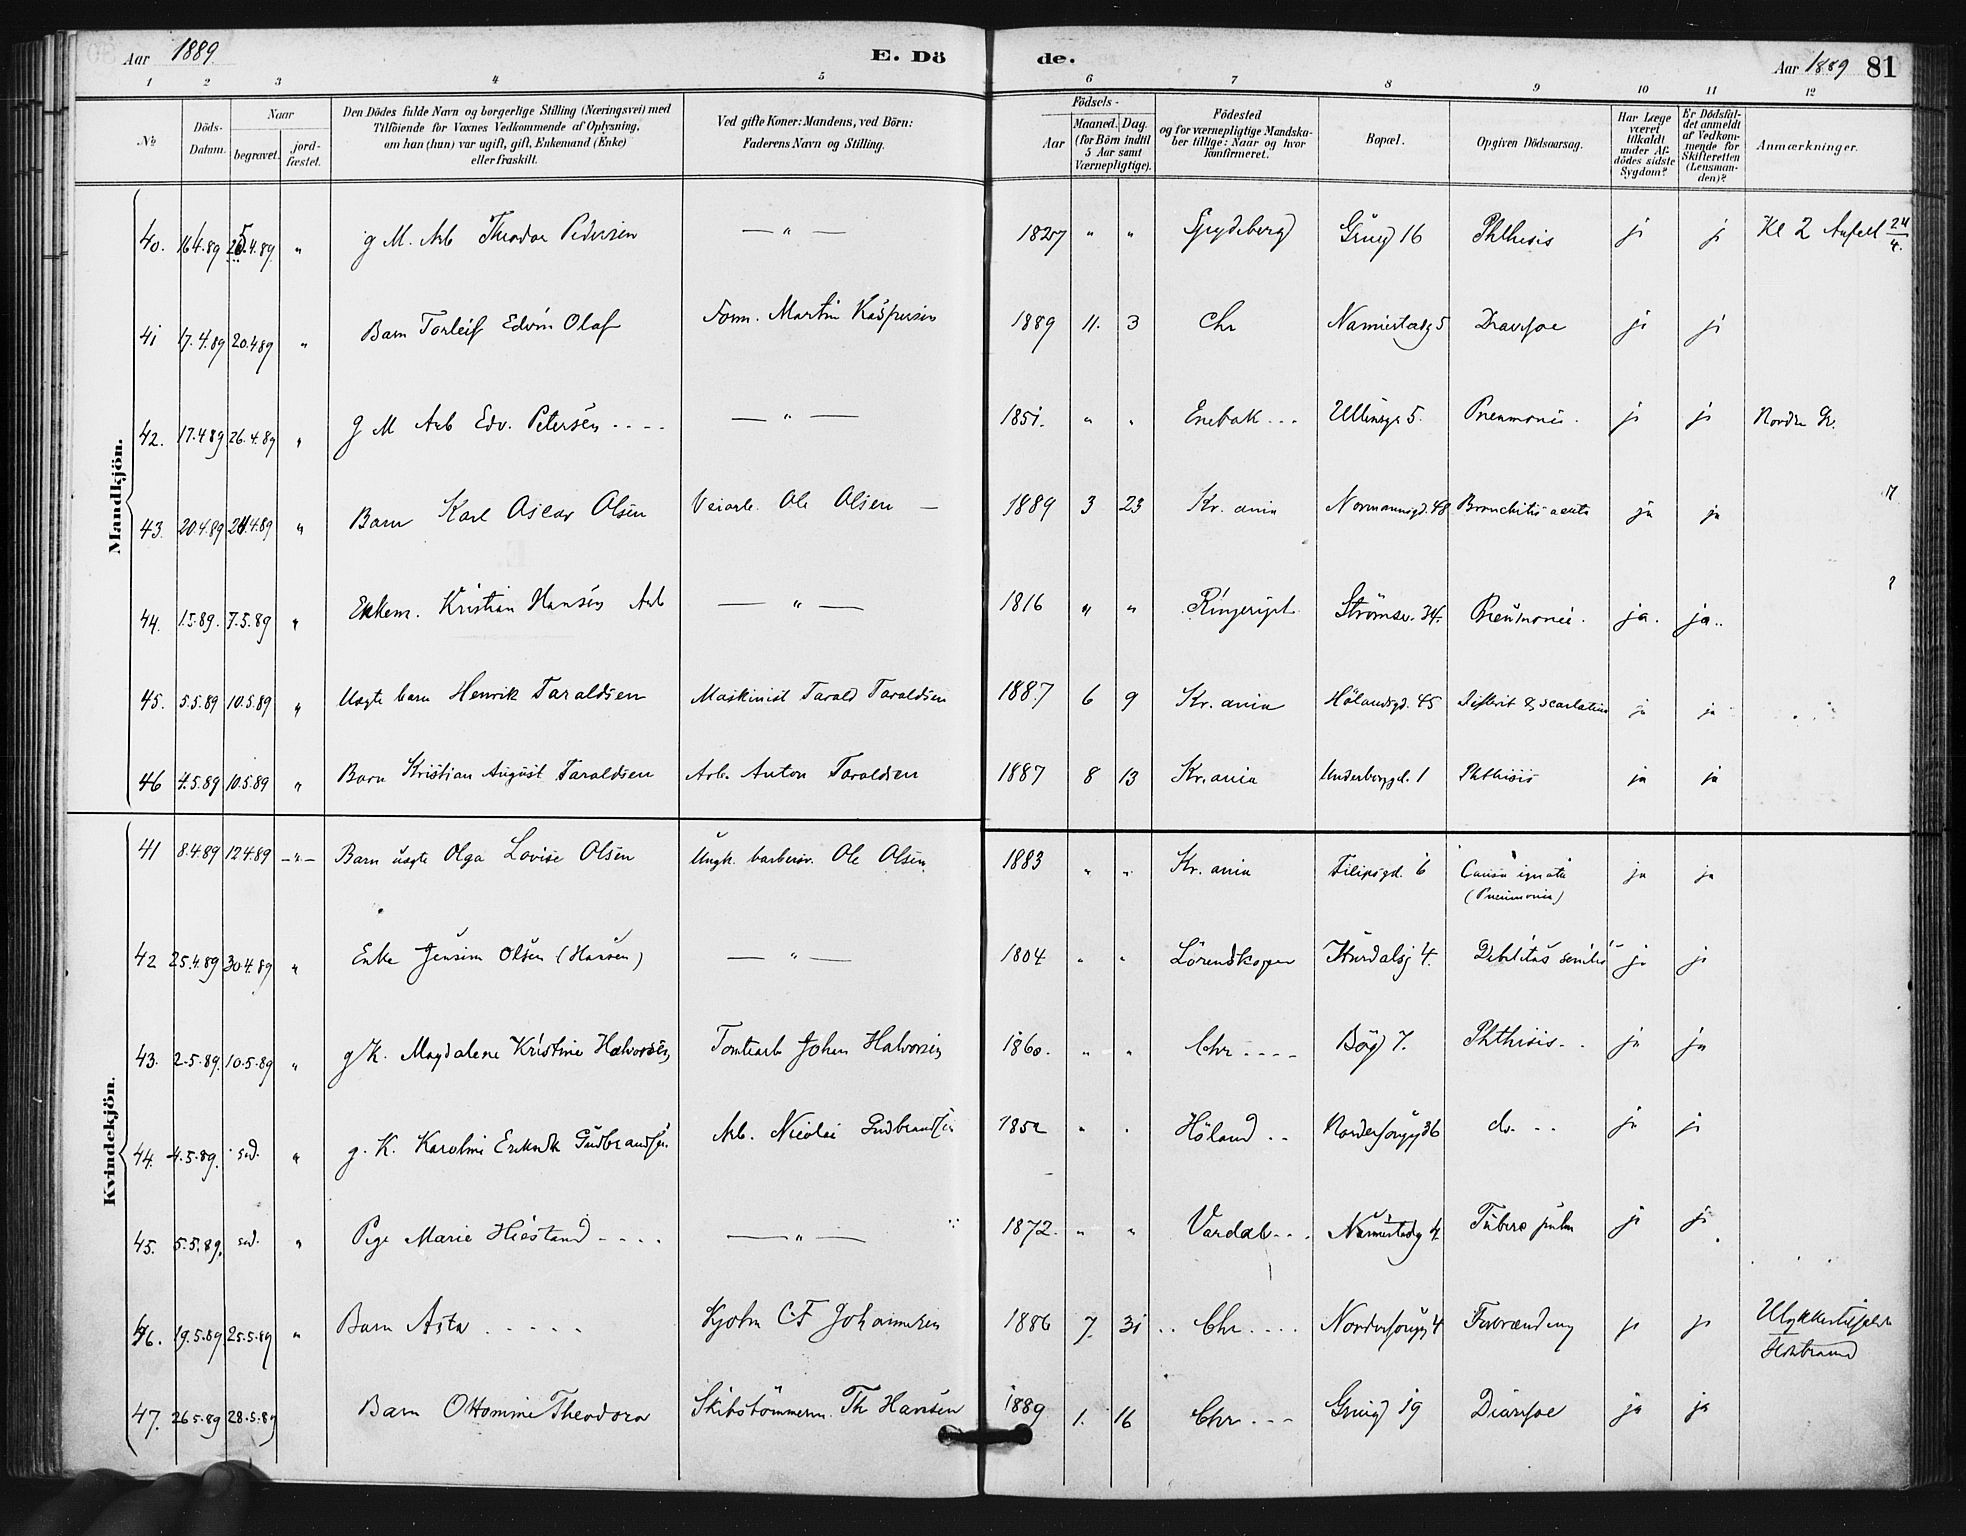 Aar 1889 E. Dö de. Aar 1889 81
1 2 3 4 5 6 7 8 9 10 11 12
No Döds-Datum. Naar begravet. jordfæstet. Den Dödes fulde Navn og borgerlige Stilling (Næringsvei) med Tilföiende for Voxnes Vedkommende af Oplysning, om han (hun) var ugift, gift, Enkemand (Enke) eller fraskilt. Ved gifte Koner: Mandens, ved Börn: Faderens Navn og Stilling. Födsels- Aar Maaned. Dag. (for Börn indtil 5 Aar samt Værnepligtige). Födested og for værnepligtige Mandskaber tillige: Naar og hvor konfirmeret. Bopæl. Opgiven Dödsaarsag. Har Læge været tilkaldt under Afdödes sidste Sygdom? Er Dödsfaldet anmeldt af Vedkommende for Skifteretten (Lensmanden)? Anmærkninger.
Mandkjön.
40. 16.4.89 25.4.89 " g M. Arb Theodor Pedersen — " — 1827 " " Spydeberg Grüng 16 Phthisis ja ja Kl 2 24/4.
41 17.4.89 20.4.89 " Barn Torleif Edvin Olaf Form. Martin Kaspersen 1889 11. 3 Chr Nannestadg 5 Diarrhoe ja ja
42. 17.4.89 26.4.89 " g M Arb Edv. Petersen .... — " — 1851. " " Enebak ... Ullinsgr 5. Pneumonie. ja ja Nordre Gr.
43. 20.4.89 24.4.89 " Barn Karl Oscar Olsen Veiarb. Ole Olsen — 1889 3 23 Kr.ania Normannsgd. 48 Bronchitis acuta ja ja
44. 1.5.89. 7.5.89 " Enkem. Kristian Hansen Arb — " — 1816 " " Ringeriget Strömsv. 34. Pneumonie. ja. ja..
45. 5.5.89 10.5.89 " Uægte barn Henrik Taraldsen Maskinist Tarald Taraldsen 1887 6 9 Kr.ania Hölandsgd. 45 Difterit & scarlatina ja ja
46 4.5.89 10.5.89 " Barn Kristian August Taraldsen Arb. Anton Taraldsen 1887 8 13 Kr.ania 1 Phthisis ja ja
Kvindekjön.
41 8.4.89 12.4.89 —"— Barn uægte Olga Lovise Olsen Ungk. barbersv. Ole Olsen 1883 " " Kr.ania Filipsgd. 6 Causa ignota (Pneumonia) ja ja
42 25.4.89 30.4.89 " Enke Jensine Olsen (Hansen) — " — 1804 " " Lörenskogen Hurdalsg 4. Debilitas senilis ja ja
43. 2.5.89. 10.5.89 " g K. Magdalene Kristine Halvorsen Tomtearb Johan Halvorsen 1860. " " Chr .... Bög 7. Phthisis .. ja ja
44. 4.5.89. sd. " g. K. Karoline Gudbrandsen Arb. Nicolai Gudbrandsen 1852 " " Höland .. 36 do. .. ja ja
45. 5.5.89. sd. " Pige Marie Hiestand .... — " — 1872. " " Vardal ... Nannestadg 4. Tuberc pulm ja ja
46. 19.5.89 25.5.89 " Barn Asta ..... Kjøbm C.F Johannesen 1886 7. 31 .. Chr .... 4 Forbrænding ja ja Ulykkestilfælde
47. 26.5.89 28.5.89 Barn Ottomine Theodora Skibstömmerm. Th Hansen 1889 1. 16 Chr ... Grüng 19 Diarrhoe ja ja